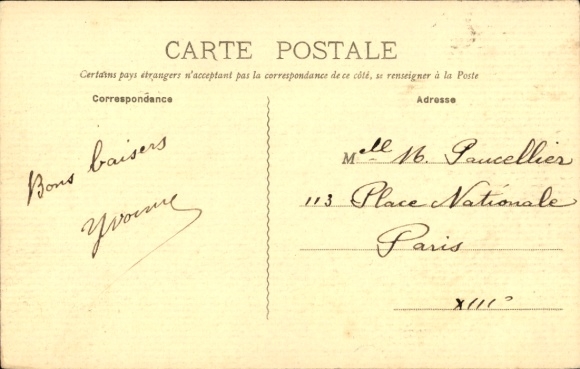 CARTE POSTALE
Certains pays étrangers n'acceptant pas la correspondance de ce côté, se renseigner à la Poste
Correspondance
Bons baisers
Yvonne
Adresse
Melle M. Paucellier
113 Place Nationale
Paris
XIIIe